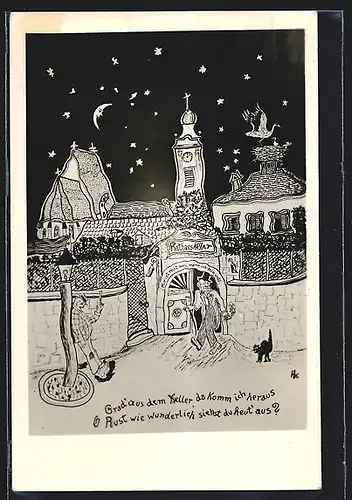 Rathauskeller
Grad' aus dem Keller da komm ich heraus
O Rust wie wunderlich siehst du heut' aus?